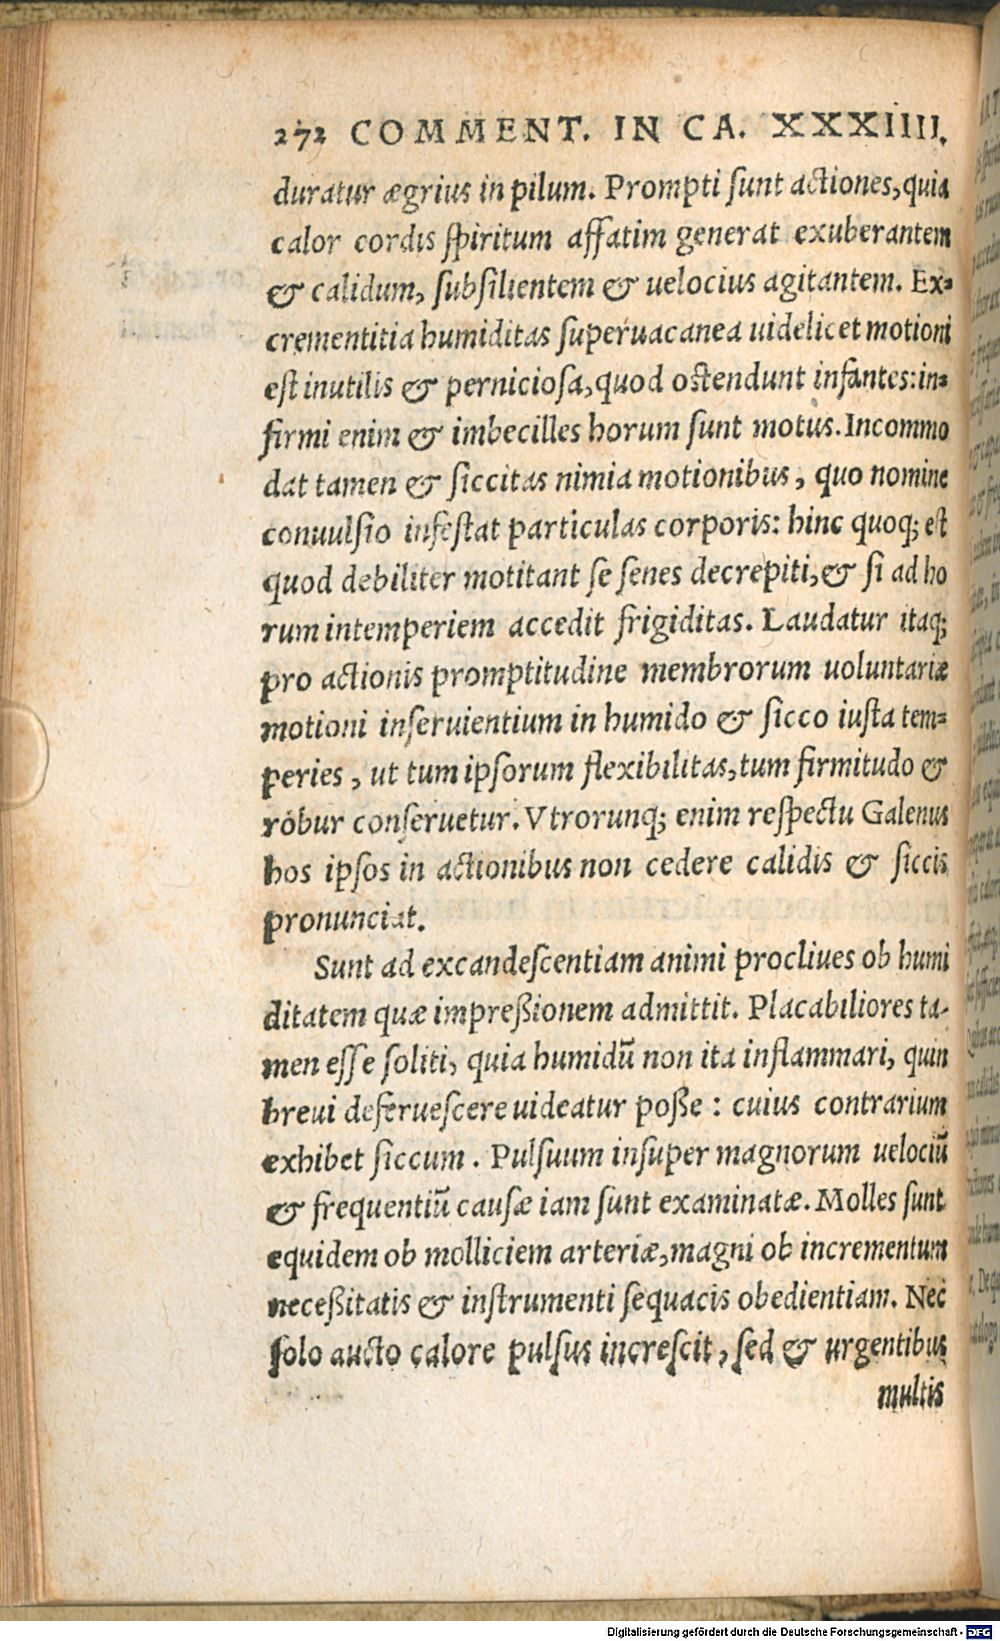 272 COMMENT. IN CA. XXXIIII.
duratur ægrius in pilum. Prompti sunt actiones, quia
calor cordis spiritum affatim generat exuberantem
& calidum, subsilientem & uelocius agitantem. Ex-
crementitia humiditas superuacanea uidelicet motioni
est inutilis & perniciosa, quod ostendunt infantes: in-
firmi enim & imbecilles horum sunt motus. Incommo
dat tamen & siccitas nimia motionibus, quo nomine
conuulsio infestat particulas corporis: hinc quoq; est
quod debiliter motitant se senes decrepiti, & si ad ho
rum intemperiem accedit frigiditas. Laudatur itaq;
pro actionis promptitudine membrorum uoluntariæ
motioni inseruientium in humido & sicco iusta tem-
peries, ut tum ipsorum flexibilitas, tum firmitudo &
robur conseruetur. Vtrorunq; enim respectu Galenus
hos ipsos in actionibus non cedere calidis & siccis
pronunciat.
Sunt ad excandescentiam animi procliues ob humi
ditatem quæ impreßionem admittit. Placabiliores ta-
men esse soliti, quia humidū non ita inflammari, quin
breui deferuescere uideatur poße: cuius contrarium
exhibet siccum. Pulsuum insuper magnorum uelociū
& frequentiū causæ iam sunt examinatæ. Molles sunt
equidem ob molliciem arteriæ, magni ob incrementum
neceßitatis & instrumenti sequacis obedientiam. Nec
solo aucto calore pulsus increscit, sed & urgentibus
multis
Digitalisierung gefördert durch die Deutsche Forschungsgemeinschaft - DFG